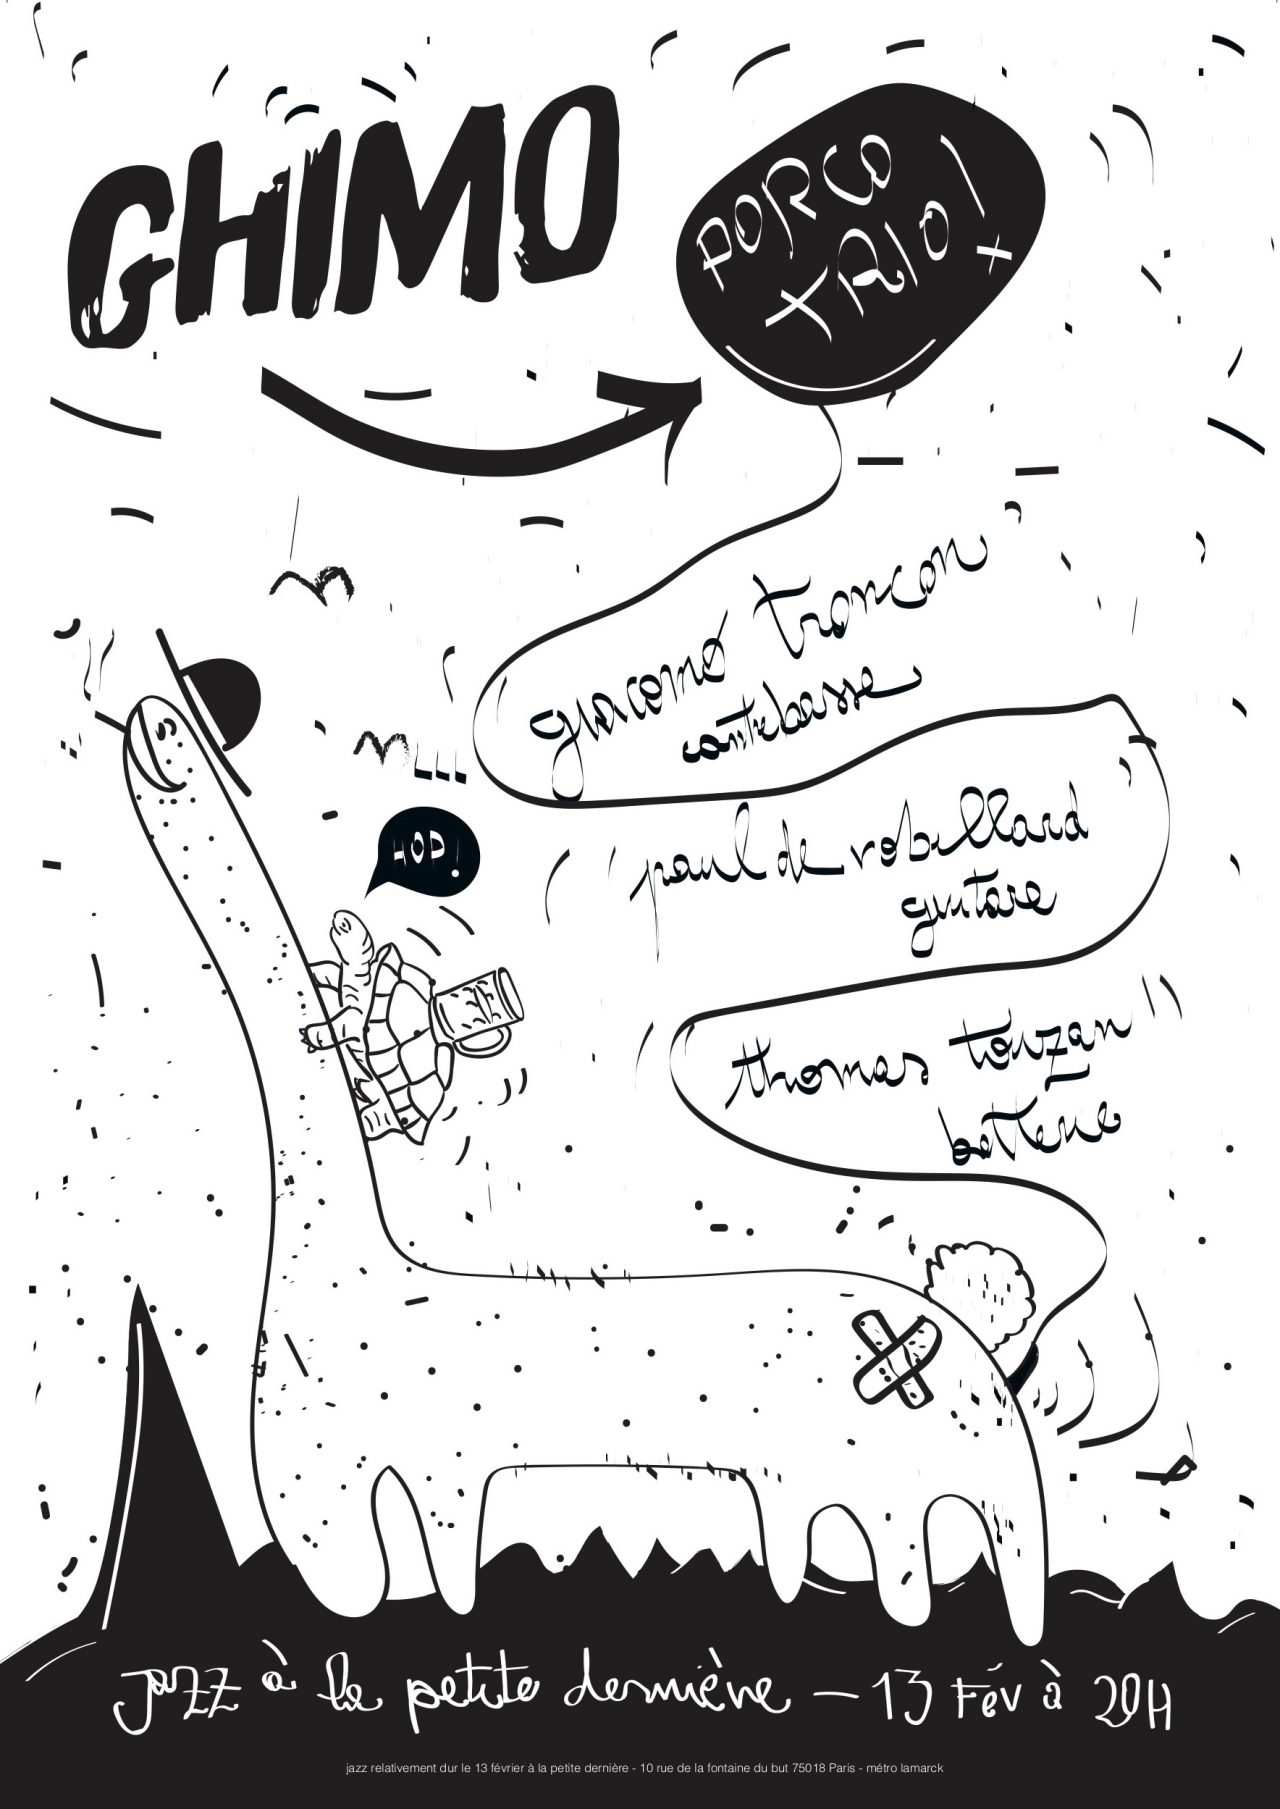 GHIMO
PORCO
TRIO!
giacomo troncon
contrebasse
paul de robillard
guitare
HOP!
thomas touzan
batterie
jazz à la petite dernière - 13 Fév à 20H
jazz relativement dur le 13 février à la petite dernière - 10 rue de la fontaine du but 75018 Paris - métro lamarck